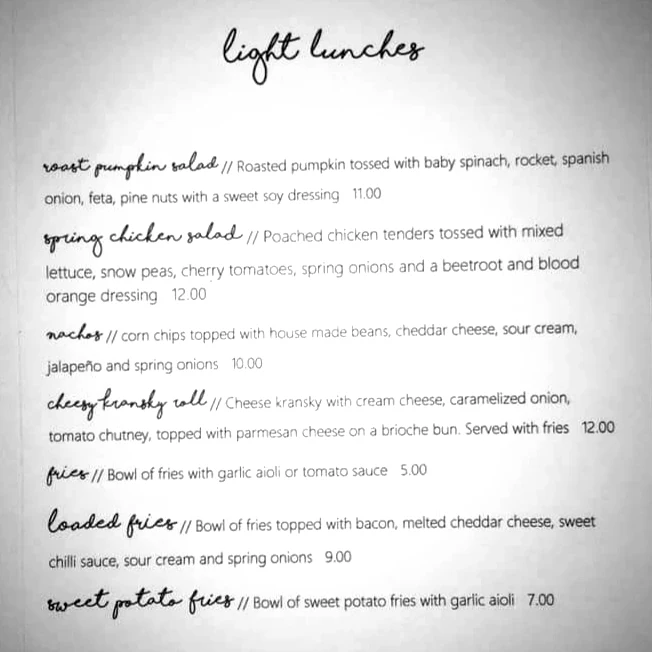 light lunches
roast pumpkin salad // Roasted pumpkin tossed with baby spinach, rocket, spanish
onion, feta, pine nuts with a sweet soy dressing 11.00
spring chicken salad // Poached chicken tenders tossed with mixed
lettuce, snow peas, cherry tomatoes, spring onions and a beetroot and blood
orange dressing 12.00
nachos // corn chips topped with house made beans, cheddar cheese, sour cream,
jalapeño and spring onions 10.00
cheesy kransky roll // Cheese kransky with cream cheese, caramelized onion,
tomato chutney, topped with parmesan cheese on a brioche bun. Served with fries 12.00
fries // Bowl of fries with garlic aioli or tomato sauce 5.00
loaded fries // Bowl of fries topped with bacon, melted cheddar cheese, sweet
chilli sauce, sour cream and spring onions 9.00
sweet potato fries // Bowl of sweet potato fries with garlic aioli 7.00